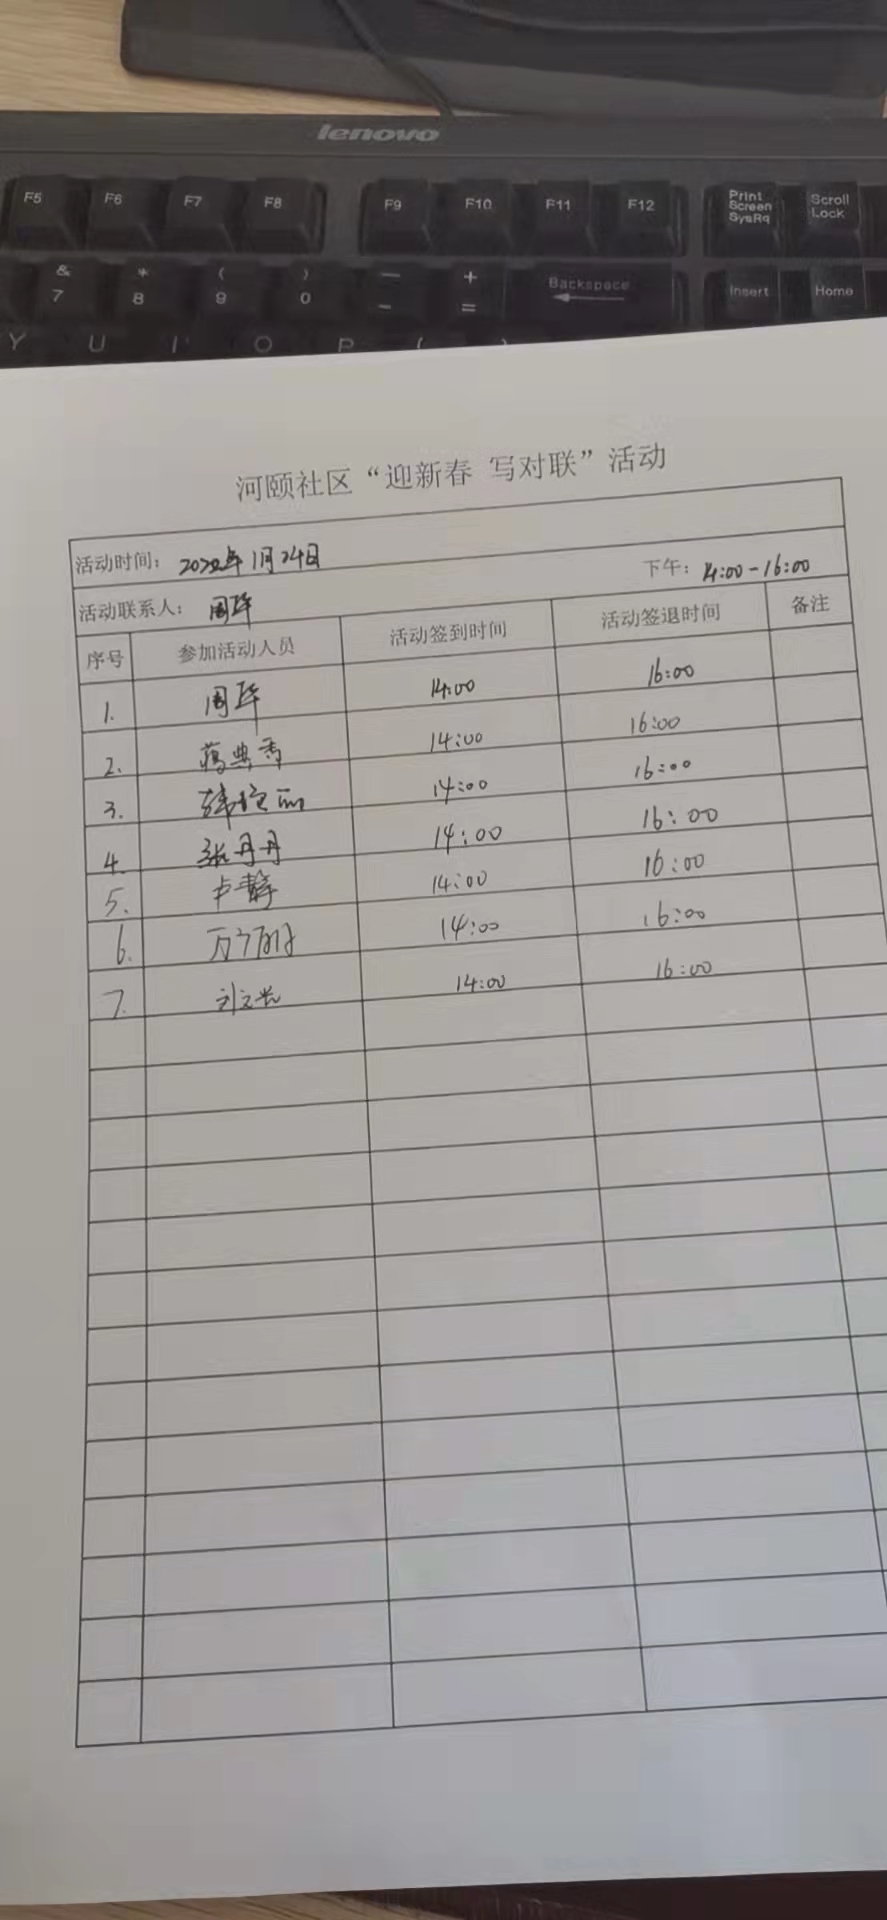 lenovo
F5 F6 F7 F8 F9 F10 F11 F12 Print Screen SysRq Scroll Lock
& * ( ) — +
7 8 9 0 - = Backspace Insert Home
Y U I O P
河颐社区“迎新春 写对联”活动
活动时间：2022年1月24日 下午：14:00-16:00
活动联系人：周华
序号 参加活动人员 活动签到时间 活动签退时间 备注
1. 周华 14:00 16:00
2. 14:00 16:00
3. 14:00 16:00
4. 张丹丹 14:00 16:00
5. 卢静 14:00 16:00
6. 14:00 16:00
7. 14:00 16:00